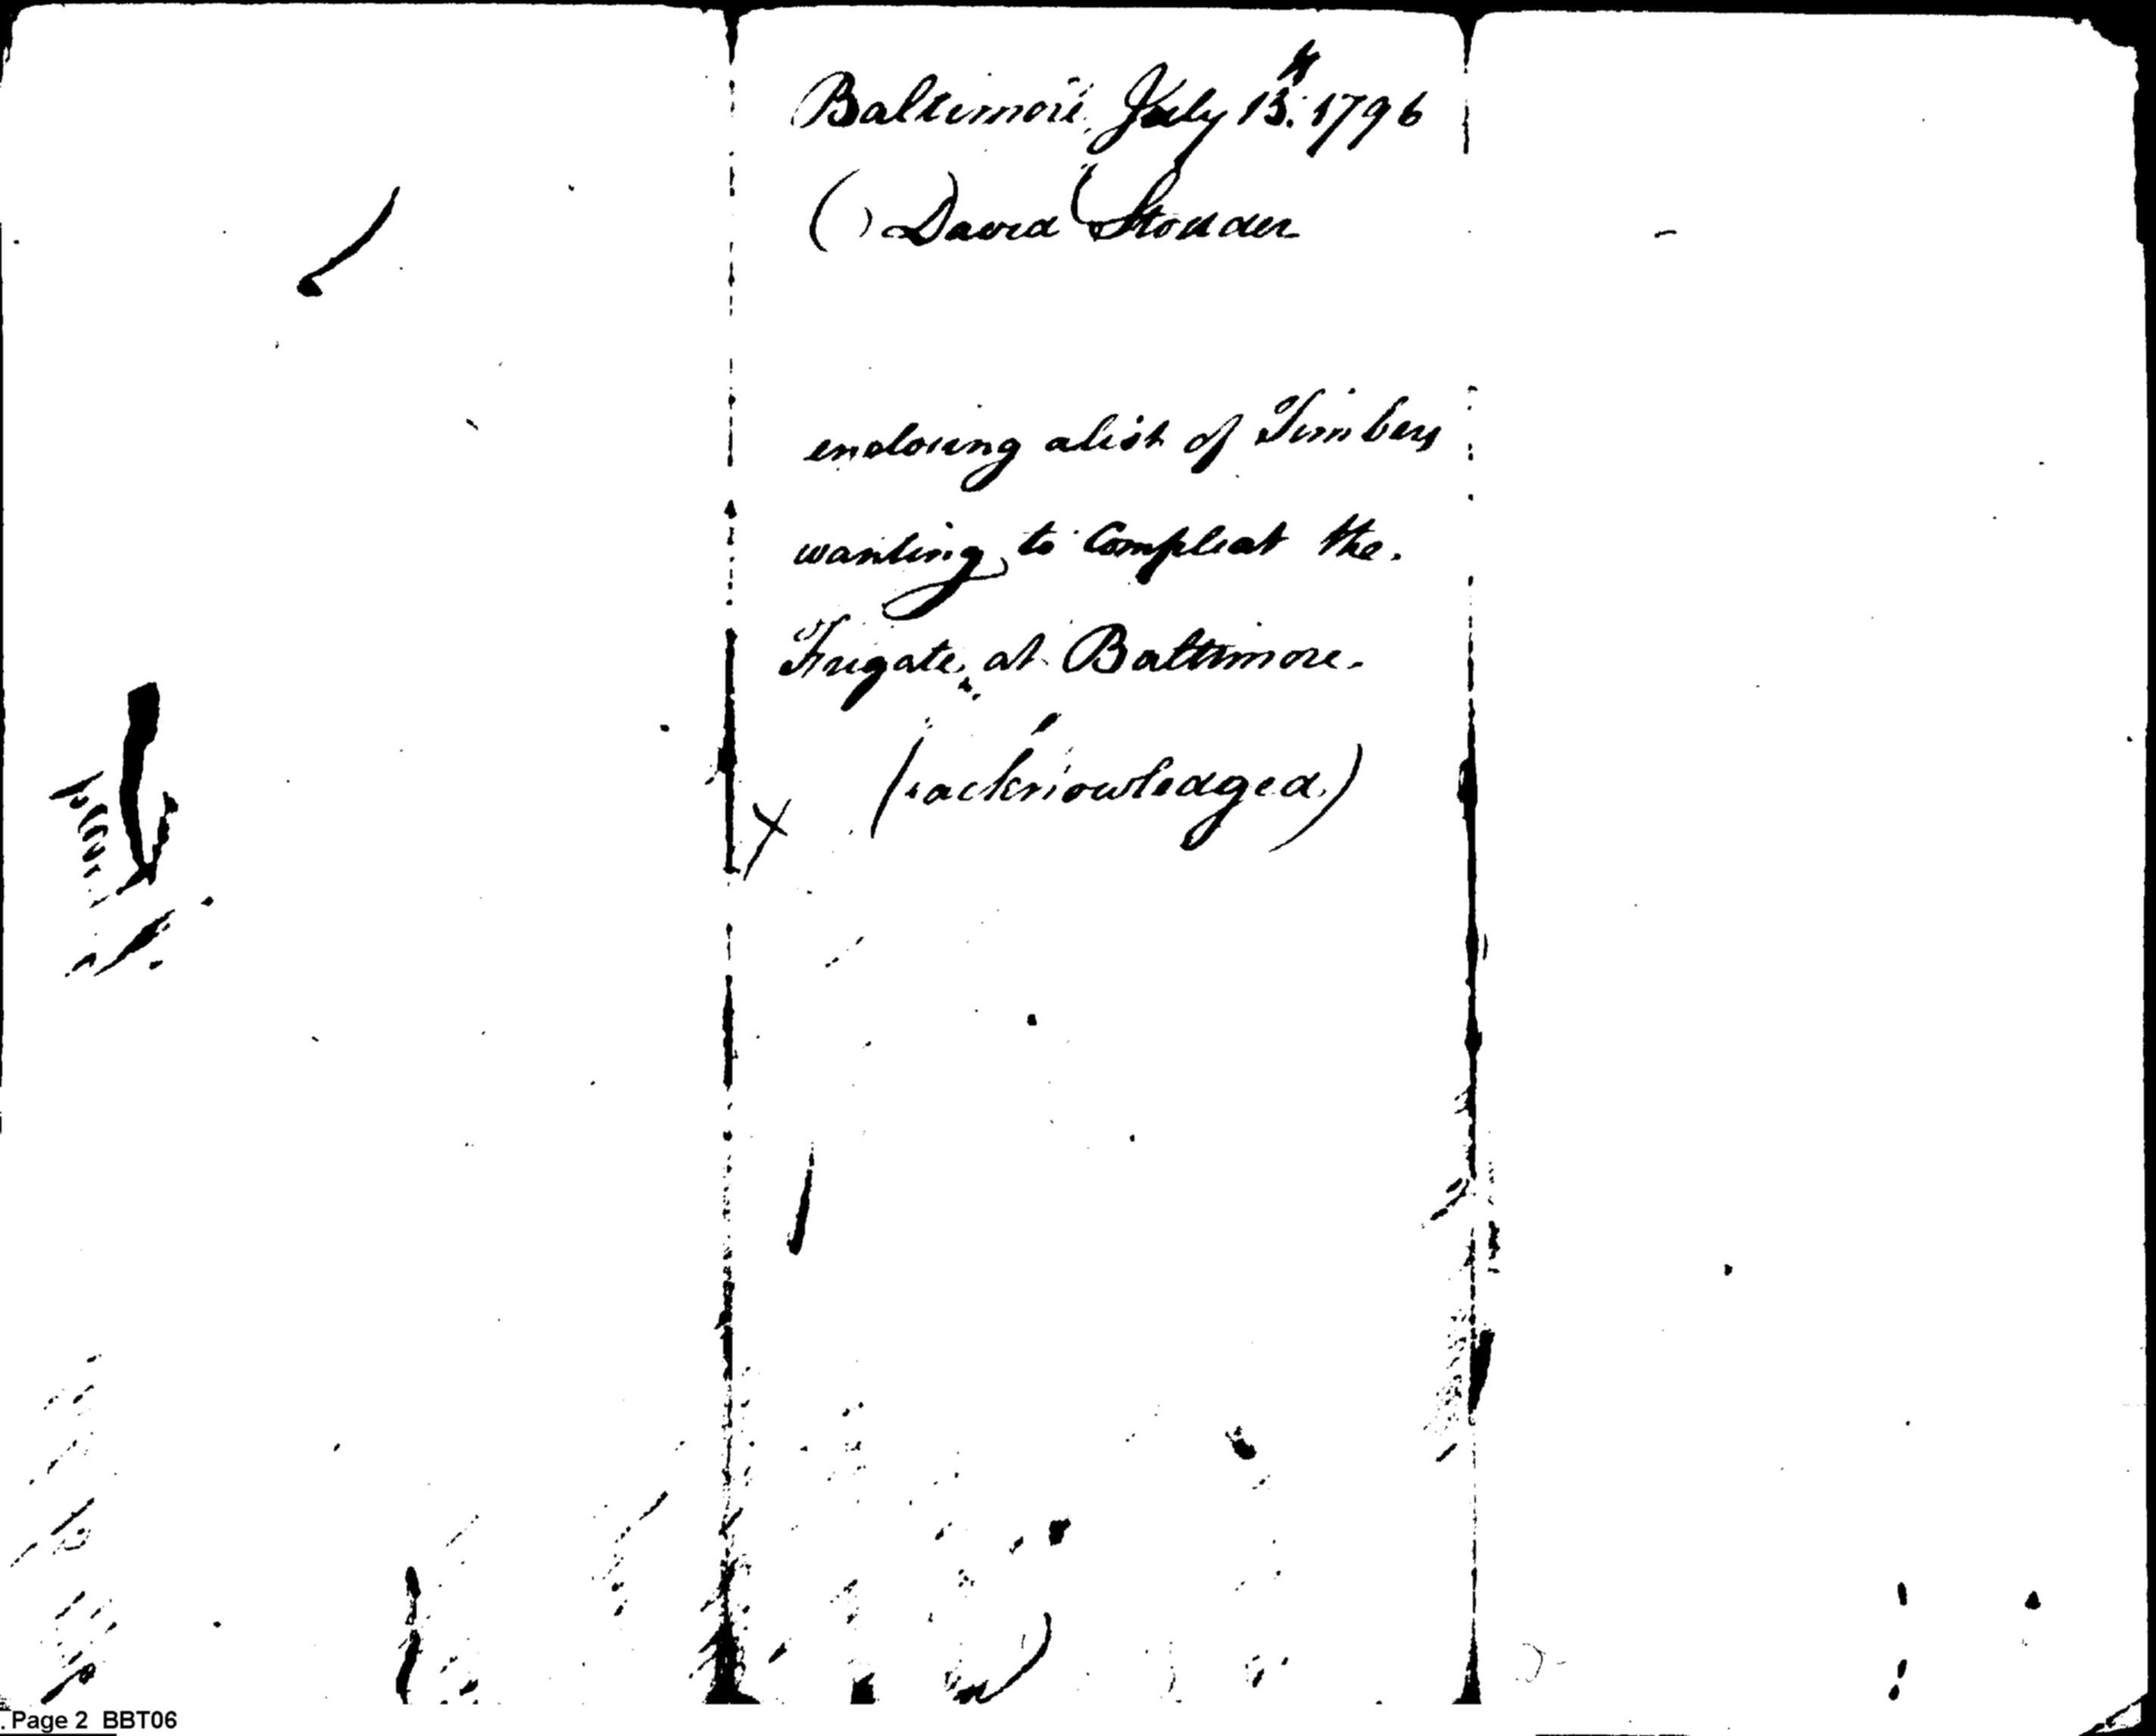 Baltimore, July 15th 1796
() David Stodder
enclosing a list of Timbers
wanting to Compleat the
Frigate, at Baltimore.
(acknowledged)
X
. Page 2 BBT06